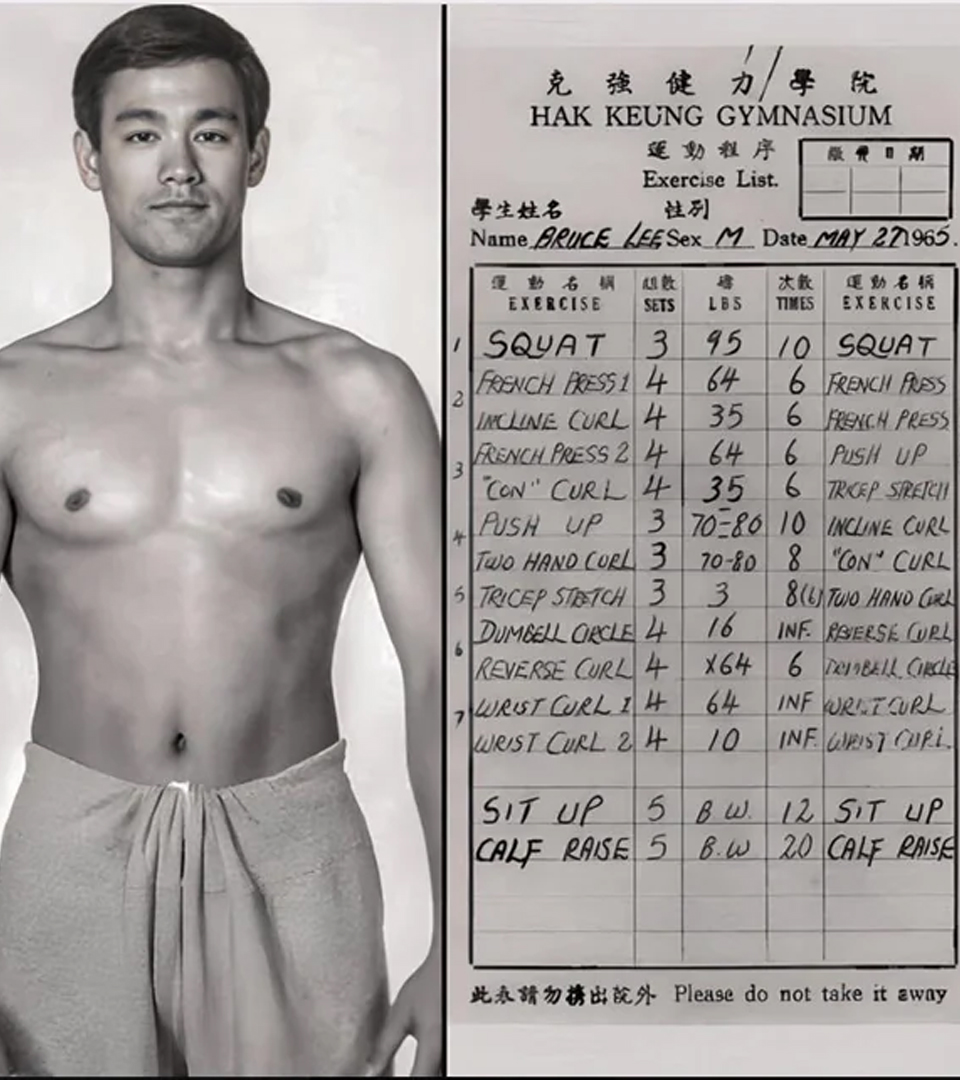 克強健力學院
HAK KEUNG GYMNASIUM
運動程序
Exercise List.
繳費日期
學生姓名 性別
Name BRUCE LEE Sex M Date MAY 27 1965.
運動名稱 組數 磅 次數 運動名稱
EXERCISE SETS LBS TIMES EXERCISE
1 SQUAT 3 95 10 SQUAT
FRENCH PRESS 1 4 64 6 FRENCH PRESS
2
INCLINE CURL 4 35 6 FRENCH PRESS
FRENCH PRESS 2 4 64 6 PUSH UP
3
"CON" CURL 4 35 6 TRICEP STRETCH
PUSH UP 3 70-80 10 INCLINE CURL
4
TWO HAND CURL 3 70-80 8 "CON" CURL
5 TRICEP STRETCH 3 3 8(6) TWO HAND CURL
DUMBELL CIRCLE 4 16 INF. REVERSE CURL
6
REVERSE CURL 4 X64 6 DUMBELL CIRCLE
WRIST CURL 1 4 64 INF WRIST CURL
7
WRIST CURL 2 4 10 INF. WRIST CURL
SIT UP 5 B.W. 12 SIT UP
CALF RAISE 5 B.W 20 CALF RAISE
此表請勿携出院外 Please do not take it away